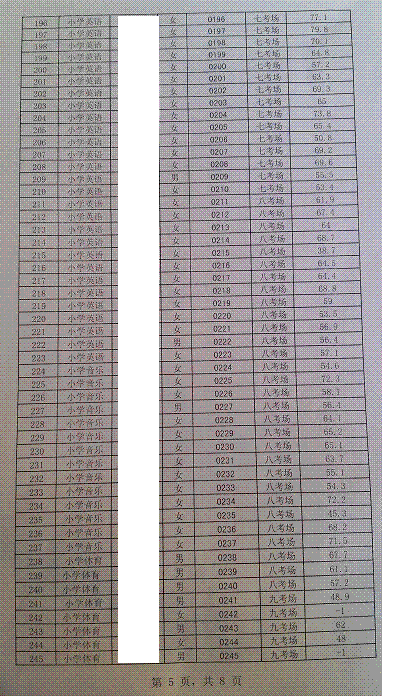 196 小学英语 女 0196 七考场 77.1
197 小学英语 女 0197 七考场 79.8
198 小学英语 女 0198 七考场 70.1
199 小学英语 女 0199 七考场 64.8
200 小学英语 女 0200 七考场 57.2
201 小学英语 女 0201 七考场 63.3
202 小学英语 女 0202 七考场 69.3
203 小学英语 女 0203 七考场 65
204 小学英语 女 0204 七考场 73.8
205 小学英语 女 0205 七考场 65.4
206 小学英语 女 0206 七考场 50.8
207 小学英语 女 0207 七考场 69.2
208 小学英语 女 0208 七考场 69.6
209 小学英语 男 0209 七考场 55.5
210 小学英语 女 0210 七考场 53.4
211 小学英语 女 0211 八考场 61.9
212 小学英语 女 0212 八考场 67.4
213 小学英语 女 0213 八考场 64
214 小学英语 女 0214 八考场 68.7
215 小学英语 女 0215 八考场 38.7
216 小学英语 女 0216 八考场 64.5
217 小学英语 女 0217 八考场 64.4
218 小学英语 女 0218 八考场 68.8
219 小学英语 女 0219 八考场 59
220 小学英语 女 0220 八考场 53.5
221 小学英语 女 0221 八考场 56.9
222 小学英语 男 0222 八考场 56.4
223 小学英语 女 0223 八考场 57.1
224 小学音乐 女 0224 八考场 54.6
225 小学音乐 女 0225 八考场 72.3
226 小学音乐 女 0226 八考场 58.1
227 小学音乐 男 0227 八考场 56.4
228 小学音乐 女 0228 八考场 64.1
229 小学音乐 女 0229 八考场 65.2
230 小学音乐 女 0230 八考场 65.1
231 小学音乐 女 0231 八考场 63.7
232 小学音乐 女 0232 八考场 55.1
233 小学音乐 女 0233 八考场 54.3
234 小学音乐 女 0234 八考场 72.2
235 小学音乐 女 0235 八考场 45.3
236 小学音乐 女 0236 八考场 68.2
237 小学音乐 女 0237 八考场 71.5
238 小学体育 男 0238 八考场 67.7
239 小学体育 男 0239 八考场 61.1
240 小学体育 男 0240 八考场 57.2
241 小学体育 男 0241 九考场 48.9
242 小学体育 女 0242 九考场 -1
243 小学体育 男 0243 九考场 62
244 小学体育 女 0244 九考场 48
245 小学体育 男 0245 九考场 -1
第 5 页，共 8 页